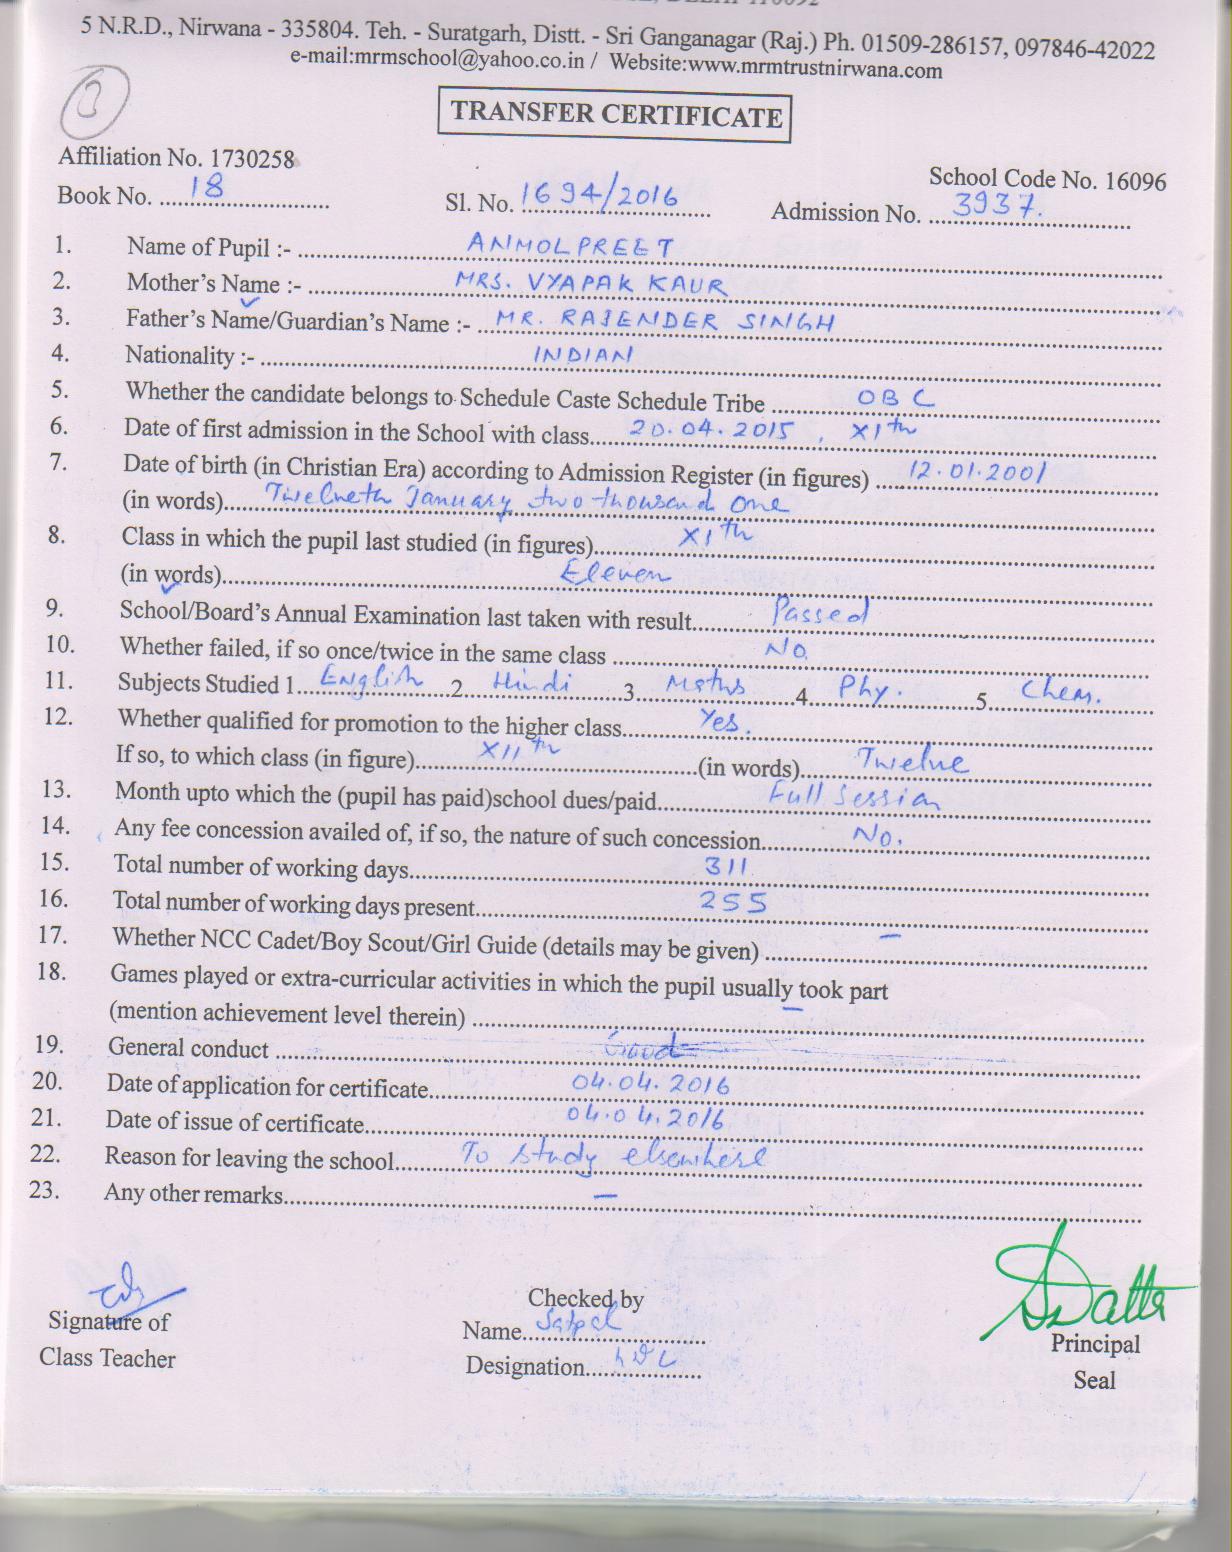 5 N.R.D., Nirwana - 335804. Teh. - Suratgarh, Distt. - Sri Ganganagar (Raj.) Ph. 01509-286157, 097846-42022
e-mail:mrmschool@yahoo.co.in / Website:www.mrmtrustnirwana.com
TRANSFER CERTIFICATE
Affiliation No. 1730258
School Code No. 16096
Book No. 18 Sl. No. 1694/2016 Admission No. 3937.
1. Name of Pupil :- ANMOLPREET
2. Mother's Name :- MRS. VYAPAK KAUR
3. Father's Name/Guardian's Name :- MR. RAJENDER SINGH
4. Nationality :- INDIAN
5. Whether the candidate belongs to Schedule Caste Schedule Tribe OBC
6. Date of first admission in the School with class 20.04.2015, XIth
7. Date of birth (in Christian Era) according to Admission Register (in figures) 12.01.2001
(in words) Twelveth January two thousand One
8. Class in which the pupil last studied (in figures) XIth
(in words) Eleven
9. School/Board's Annual Examination last taken with result Passed
10. Whether failed, if so once/twice in the same class No
11. Subjects Studied 1 English 2 Hindi 3 Maths 4 Phy. 5 Chem.
12. Whether qualified for promotion to the higher class Yes.
If so, to which class (in figure) XIIth (in words) Twelve
13. Month upto which the (pupil has paid)school dues/paid Full Session
14. Any fee concession availed of, if so, the nature of such concession No.
15. Total number of working days 311
16. Total number of working days present 255
17. Whether NCC Cadet/Boy Scout/Girl Guide (details may be given) —
18. Games played or extra-curricular activities in which the pupil usually took part
(mention achievement level therein) —
19. General conduct Good
20. Date of application for certificate 04.04.2016
21. Date of issue of certificate 04.04.2016
22. Reason for leaving the school To study elsewhere
23. Any other remarks —
Checked by
Signature of
Class Teacher
Name Satpal
Designation
Principal
Seal